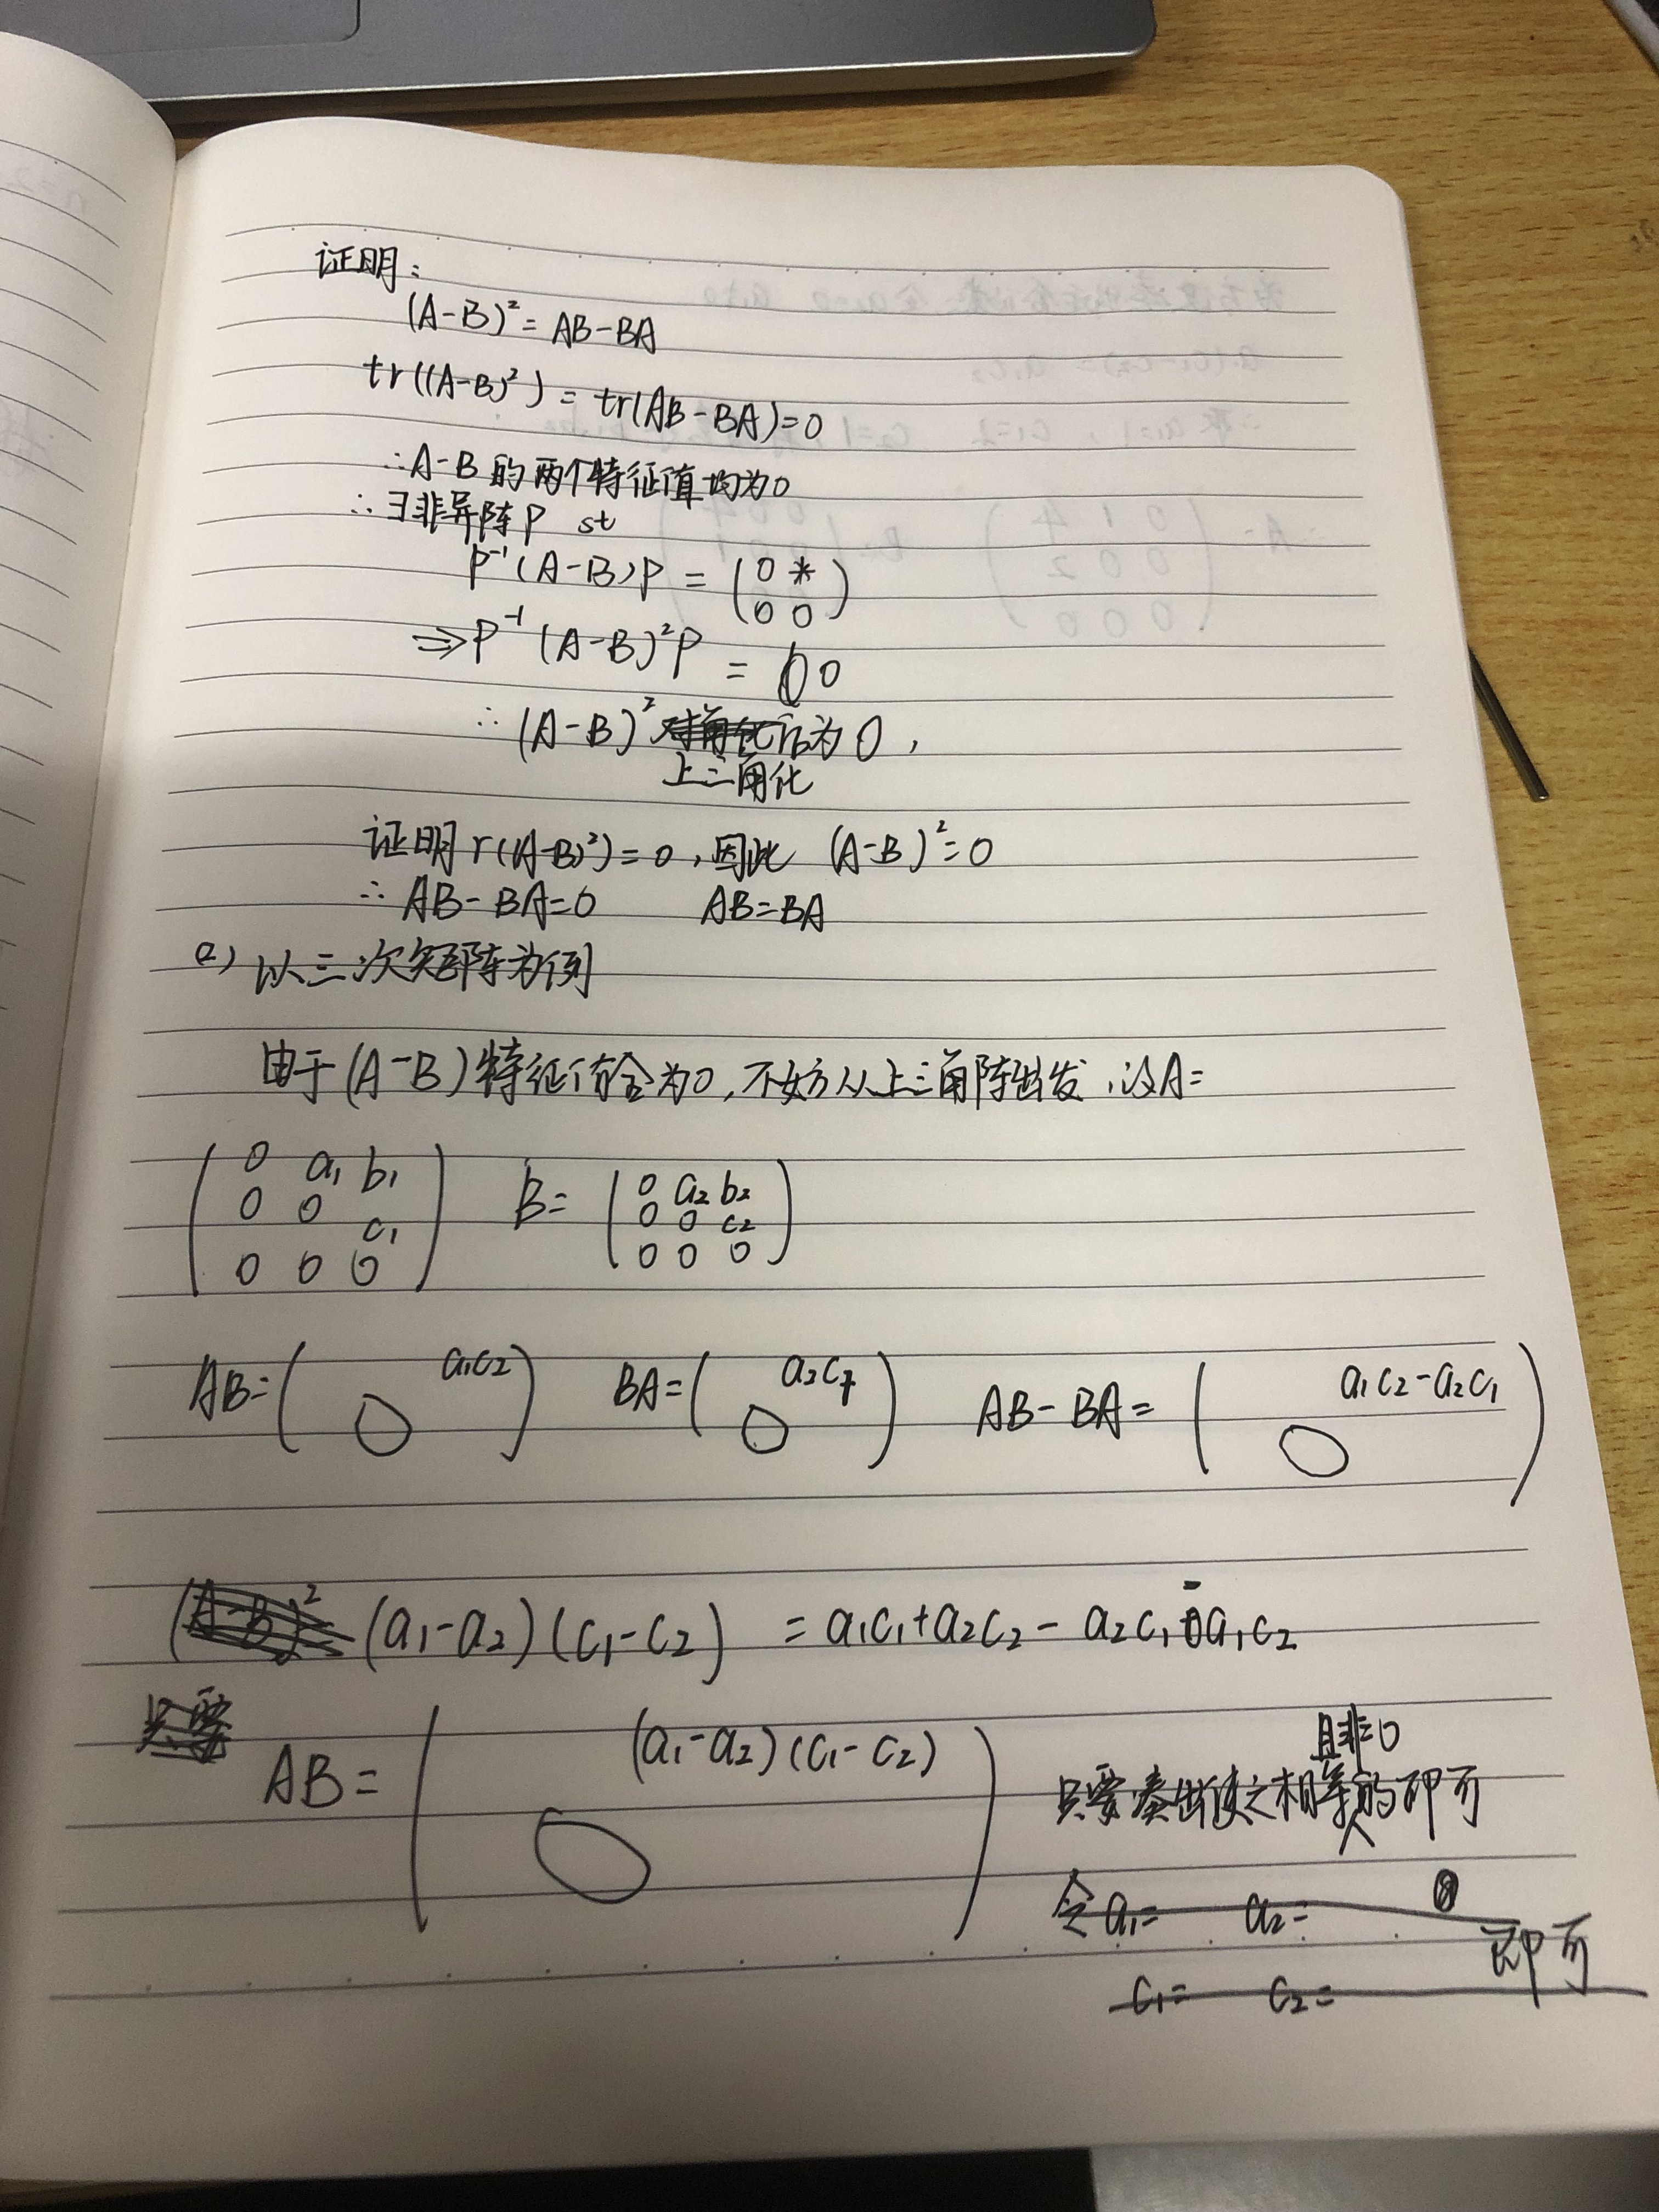 证明：
(A-B)²=AB-BA
tr((A-B)²)=tr(AB-BA)=0
∴A-B的两个特征值均为0
∴∃非异阵P st
P⁻¹(A-B)P=(0 *
0 0)
⇒P⁻¹(A-B)²P = 0
∴(A-B)²后为0，
上三角化
证明r((A-B)²)=0，因此 (A-B)²=0
∴AB-BA=0 AB=BA
(2) 以三次矩阵为例
由于(A-B)特征值全为0，不妨从上三角阵出发，设A=
(0 a₁ b₁
0 0 c₁
0 0 0) B=(0 a₂ b₂
0 0 c₂
0 0 0)
AB=( a₁c₂
0 ) BA=( a₂c₁
0 ) AB-BA=( a₁c₂-a₂c₁
0 )
(a₁-a₂)(c₁-c₂) =a₁c₁+a₂c₂-a₂c₁-a₁c₂
AB=( (a₁-a₂)(c₁-c₂)
0 )
且非=0
只要凑出使之相等的即可
令a₁= a₂=
即可
c₁= c₂=